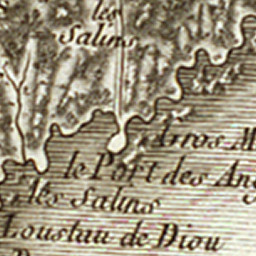 les
Salins
Gros M
le Port des Ang
Als Salins
Loustau de Diou